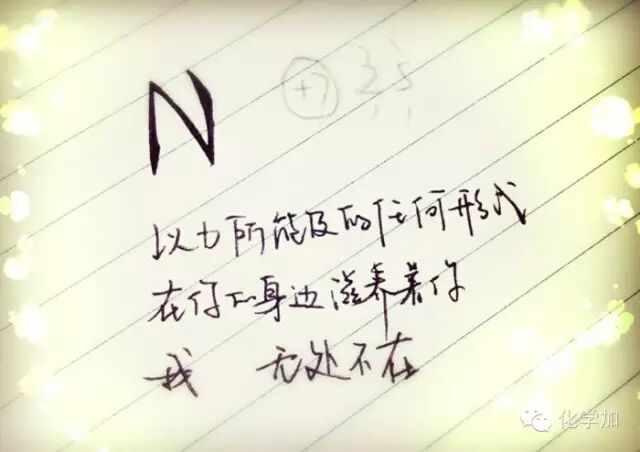 N
+7 2 5
以力所能及的任何形式
在你的身边滋养着你
我 无处不在
化学加